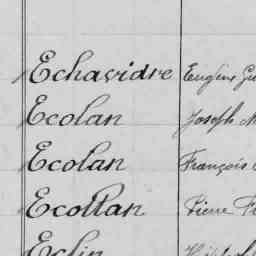 Echavidre Eugène
Ecolan Joseph
Ecolan François
Ecollan Pierre
Eclin